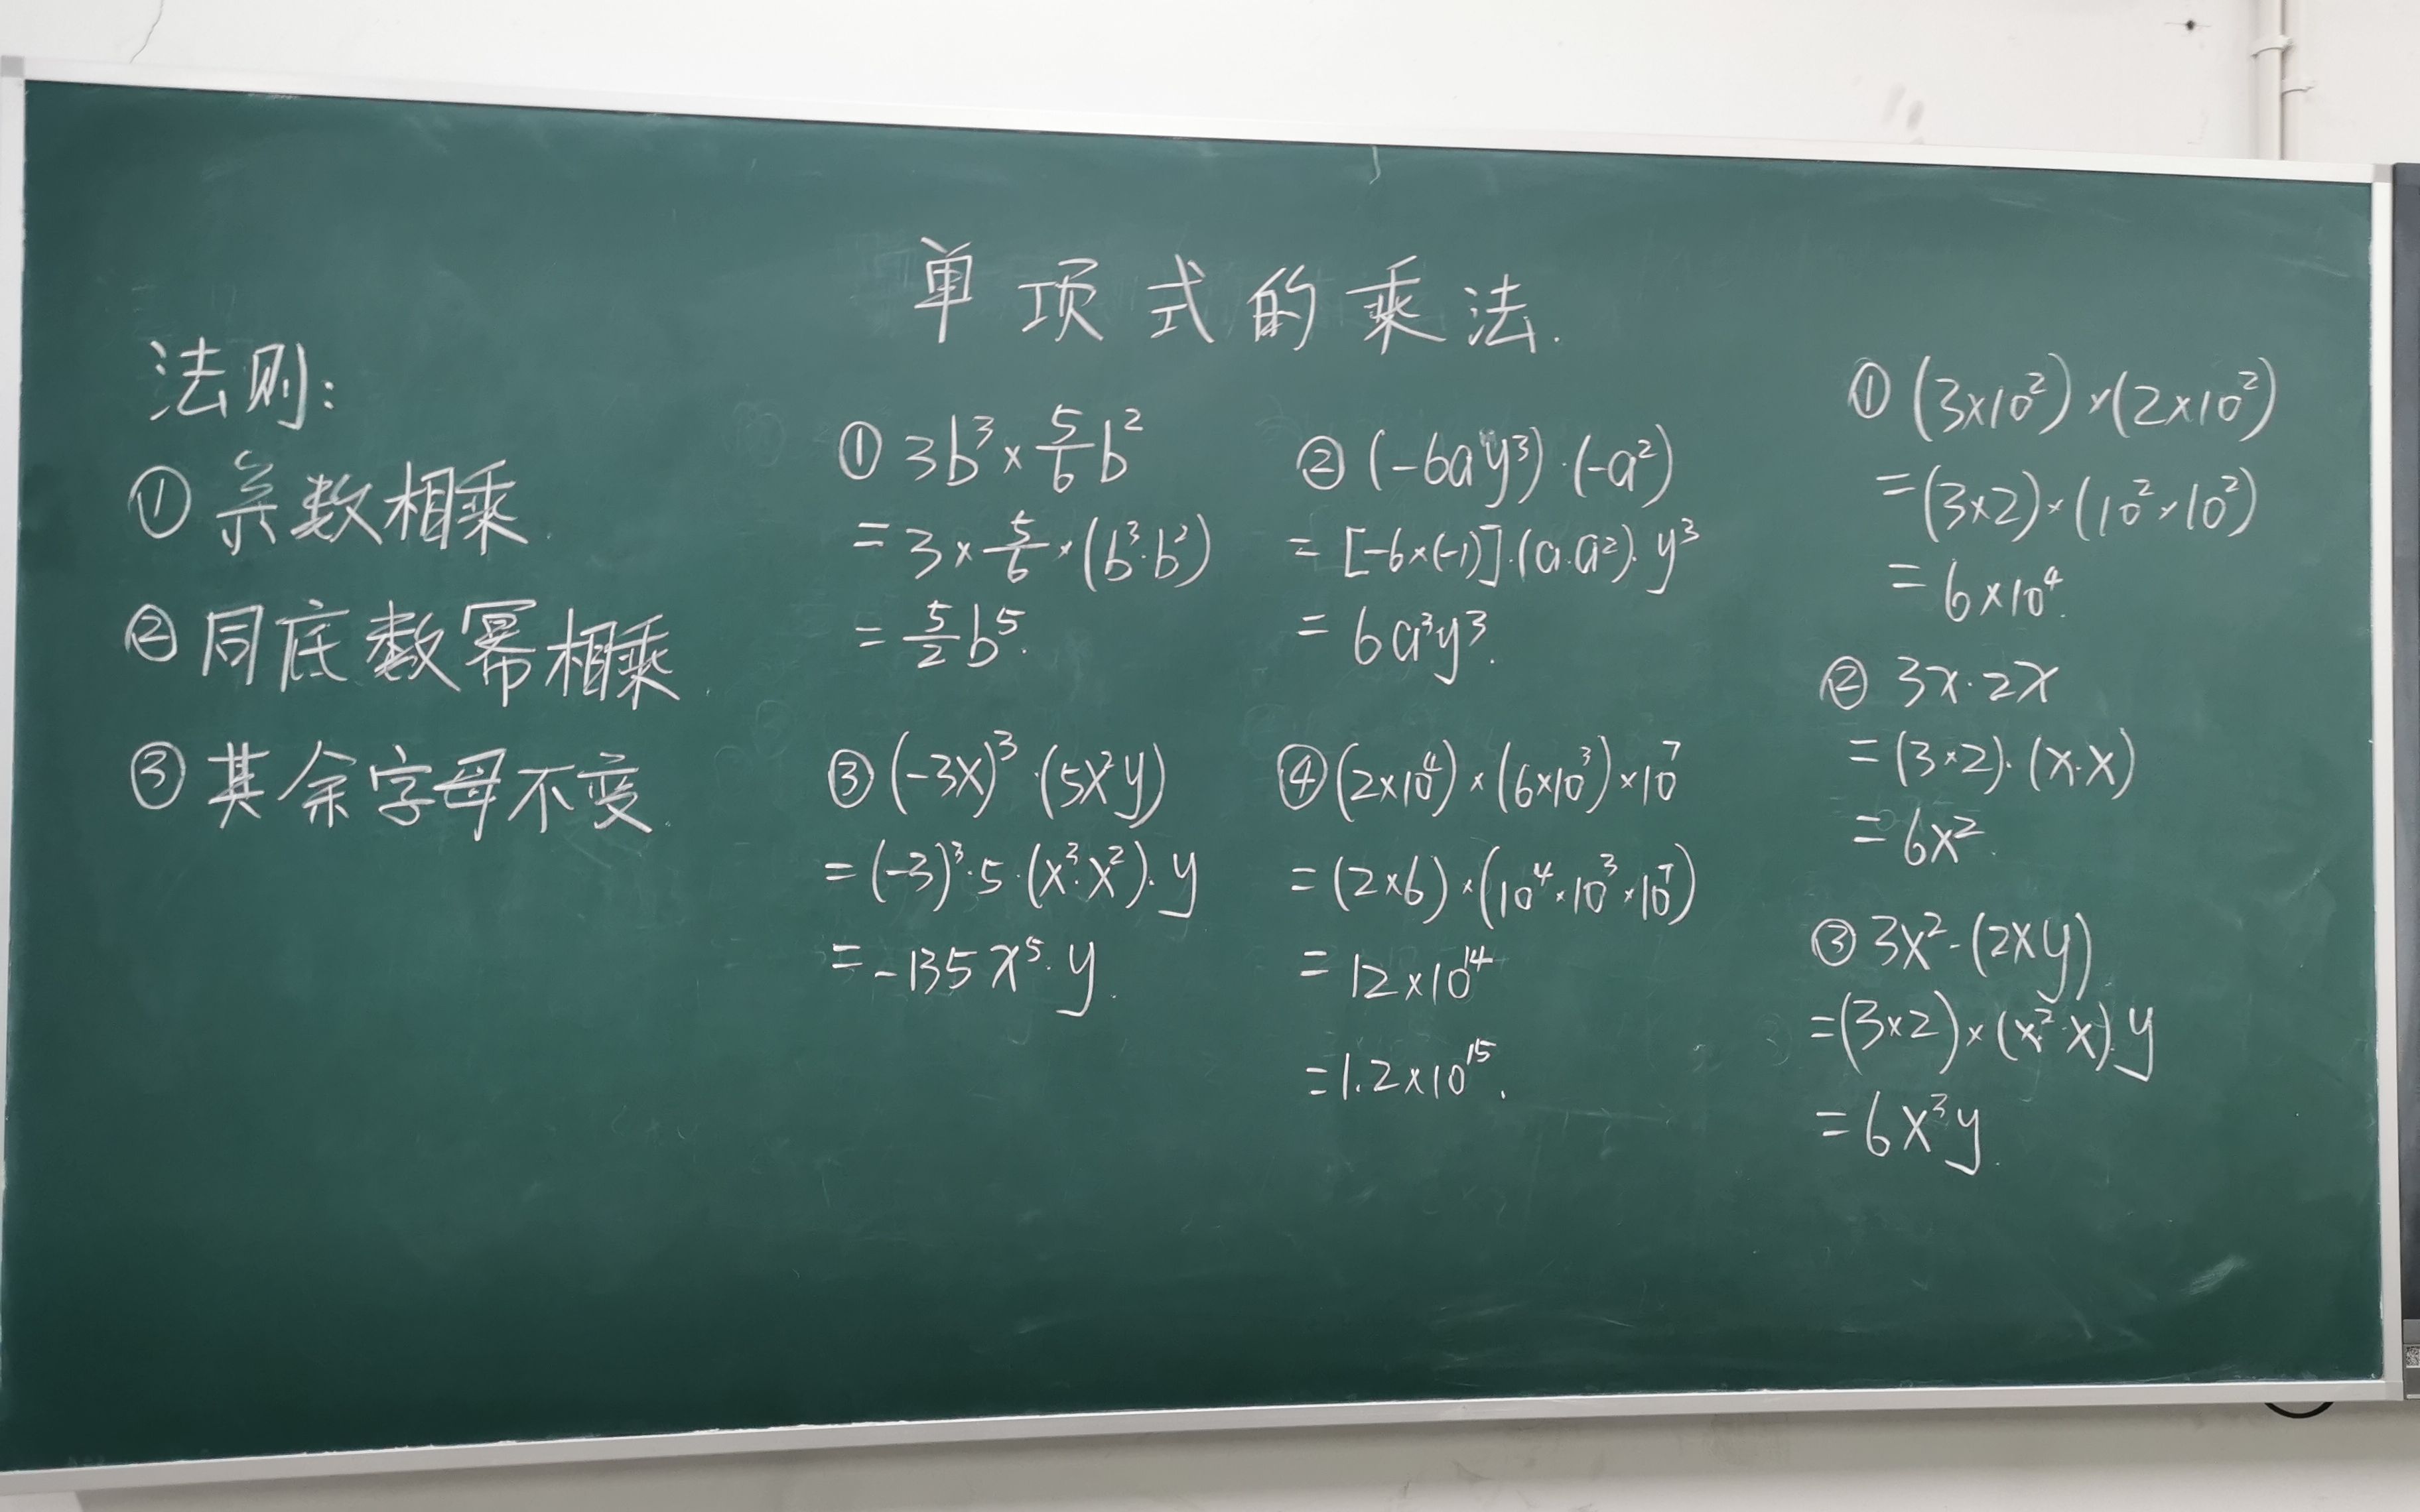 单项式的乘法.
法则:
① 系数相乘.
② 同底数幂相乘.
③ 其余字母不变.
① 3b³ × 5/6 b²
= 3 × 5/6 × (b³·b²)
= 5/2 b⁵.
② (-6ay³)·(-a²)
= [-6×(-1)]·(a·a²)·y³
= 6a³y³.
③ (-3x)³·(5x²y)
= (-3)³·5·(x³·x²)·y
= -135x⁵·y.
④ (2×10⁴)×(6×10³)×10⁷
= (2×6)×(10⁴×10³×10⁷)
= 12×10¹⁴
= 1.2×10¹⁵.
① (3×10²)×(2×10²)
= (3×2)×(10²×10²)
= 6×10⁴.
② 3x·2x
= (3×2)·(x·x)
= 6x².
③ 3x²-(2xy)
= (3×2)×(x²·x)·y
= 6x³y.